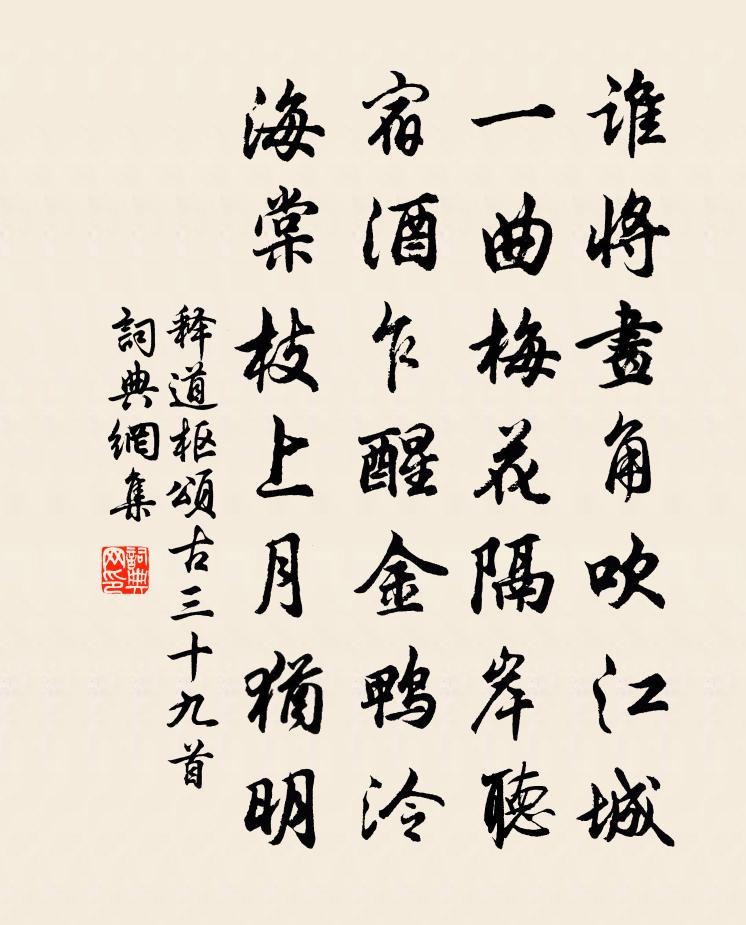 谁將畫角吹江城
一曲梅花隔岸聽
宿酒乍醒金鴨泠
海棠枝上月猶明
释道枢頌古三十九首
詞典網集
詞典網印